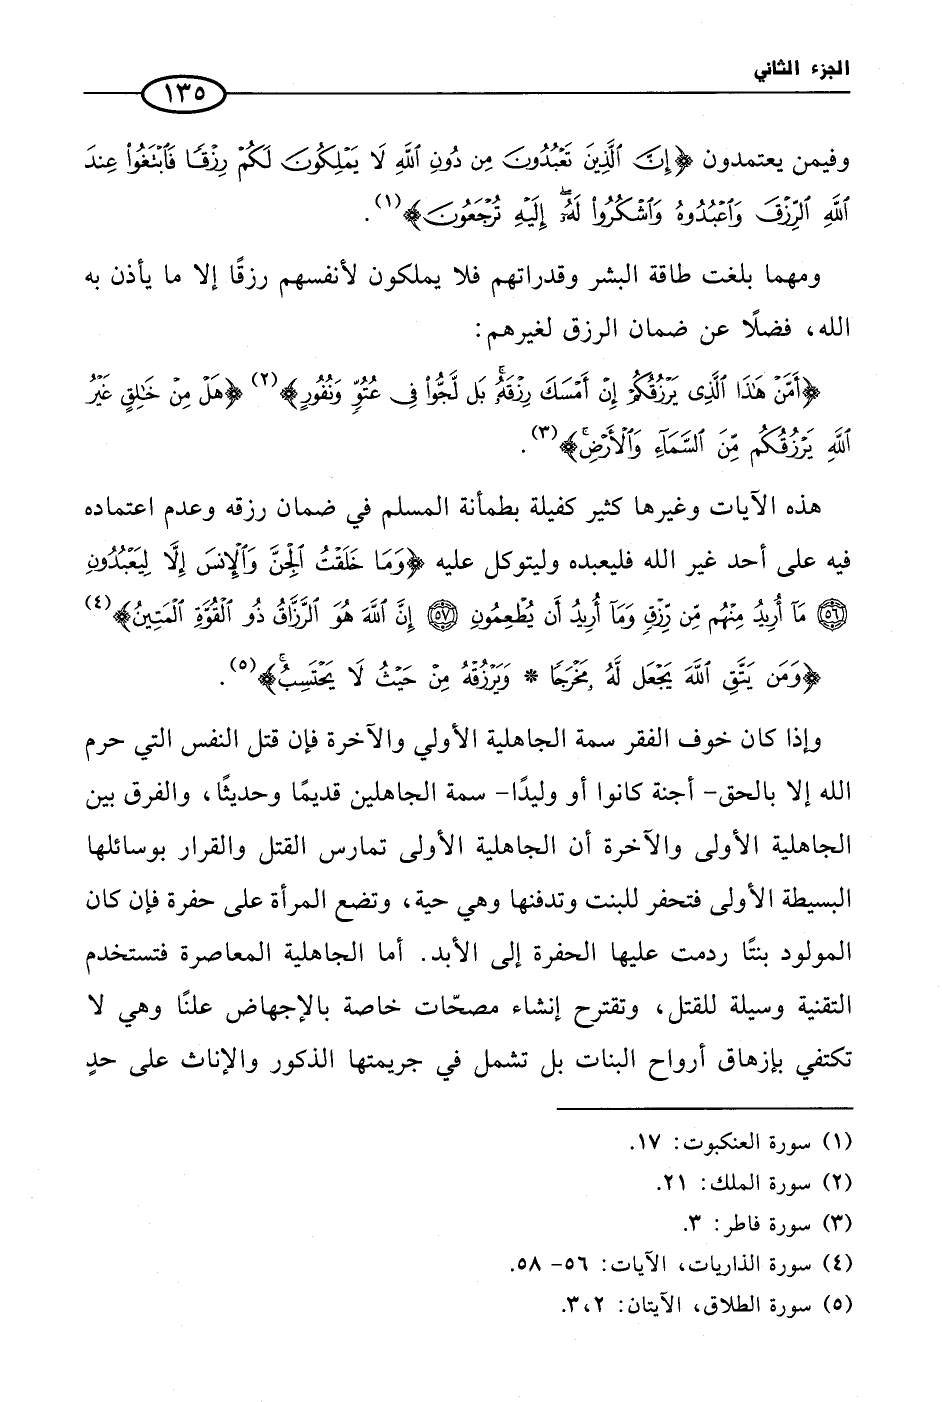 الجزء الثاني
١٣٥
وفيمن يعتمدون ﴿إِنَّ الَّذِينَ تَعْبُدُونَ مِن دُونِ اللَّهِ لَا يَمْلِكُونَ لَكُمْ رِزْقًا فَابْتَغُوا عِندَ
اللَّهِ الرِّزْقَ وَاعْبُدُوهُ وَاشْكُرُوا لَهُ إِلَيْهِ تُرْجَعُونَ﴾(١).
ومهما بلغت طاقة البشر وقدراتهم فلا يملكون لأنفسهم رزقًا إلا ما يأذن به
الله، فضلًا عن ضمان الرزق لغيرهم:
﴿أَمَّنْ هَٰذَا الَّذِي يَرْزُقُكُمْ إِنْ أَمْسَكَ رِزْقَهُ بَل لَّجُّوا فِي عُتُوٍّ وَنُفُورٍ﴾(٢) ﴿هَلْ مِنْ خَٰلِقٍ غَيْرُ
اللَّهِ يَرْزُقُكُم مِّنَ السَّمَاءِ وَالْأَرْضِ﴾(٣).
هذه الآيات وغيرها كثير كفيلة بطمأنة المسلم في ضمان رزقه وعدم اعتماده
فيه على أحد غير الله فليعبده وليتوكل عليه ﴿وَمَا خَلَقْتُ الْجِنَّ وَالْإِنسَ إِلَّا لِيَعْبُدُونِ
٥٦ مَا أُرِيدُ مِنْهُم مِّن رِّزْقٍ وَمَا أُرِيدُ أَن يُطْعِمُونِ ٥٧ إِنَّ اللَّهَ هُوَ الرَّزَّاقُ ذُو الْقُوَّةِ الْمَتِينُ﴾(٤)
﴿وَمَن يَتَّقِ اللَّهَ يَجْعَل لَّهُ مَخْرَجًا * وَيَرْزُقْهُ مِنْ حَيْثُ لَا يَحْتَسِبُ﴾(٥).
وإذا كان خوف الفقر سمة الجاهلية الأولي والآخرة فإن قتل النفس التي حرم
الله إلا بالحق- أجنة كانوا أو وليدًا- سمة الجاهلين قديمًا وحديثًا، والفرق بين
الجاهلية الأولى والآخرة أن الجاهلية الأولى تمارس القتل والقرار بوسائلها
البسيطة الأولى فتحفر للبنت وتدفنها وهي حية، وتضع المرأة على حفرة فإن كان
المولود بنتًا ردمت عليها الحفرة إلى الأبد. أما الجاهلية المعاصرة فتستخدم
التقنية وسيلة للقتل، وتقترح إنشاء مصحّات خاصة بالإجهاض علنًا وهي لا
تكتفي بإزهاق أرواح البنات بل تشمل في جريمتها الذكور والإناث على حدٍ
(١) سورة العنكبوت: ١٧.
(٢) سورة الملك: ٢١.
(٣) سورة فاطر: ٣.
(٤) سورة الذاريات، الآيات: ٥٦- ٥٨.
(٥) سورة الطلاق، الآيتان: ٣،٢.